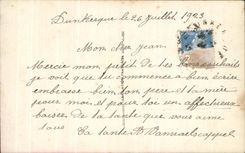 Dunkerque le 26 Juillet 1923
Mon cher Jean
Merci mon petit de tes bons souhaits
je vois que tu commence à bien écrire
embrasse bien ton père et ta mère
pour moi et pour toi un affectueux
baiser de la tante que vous aime
tous
ta tante B